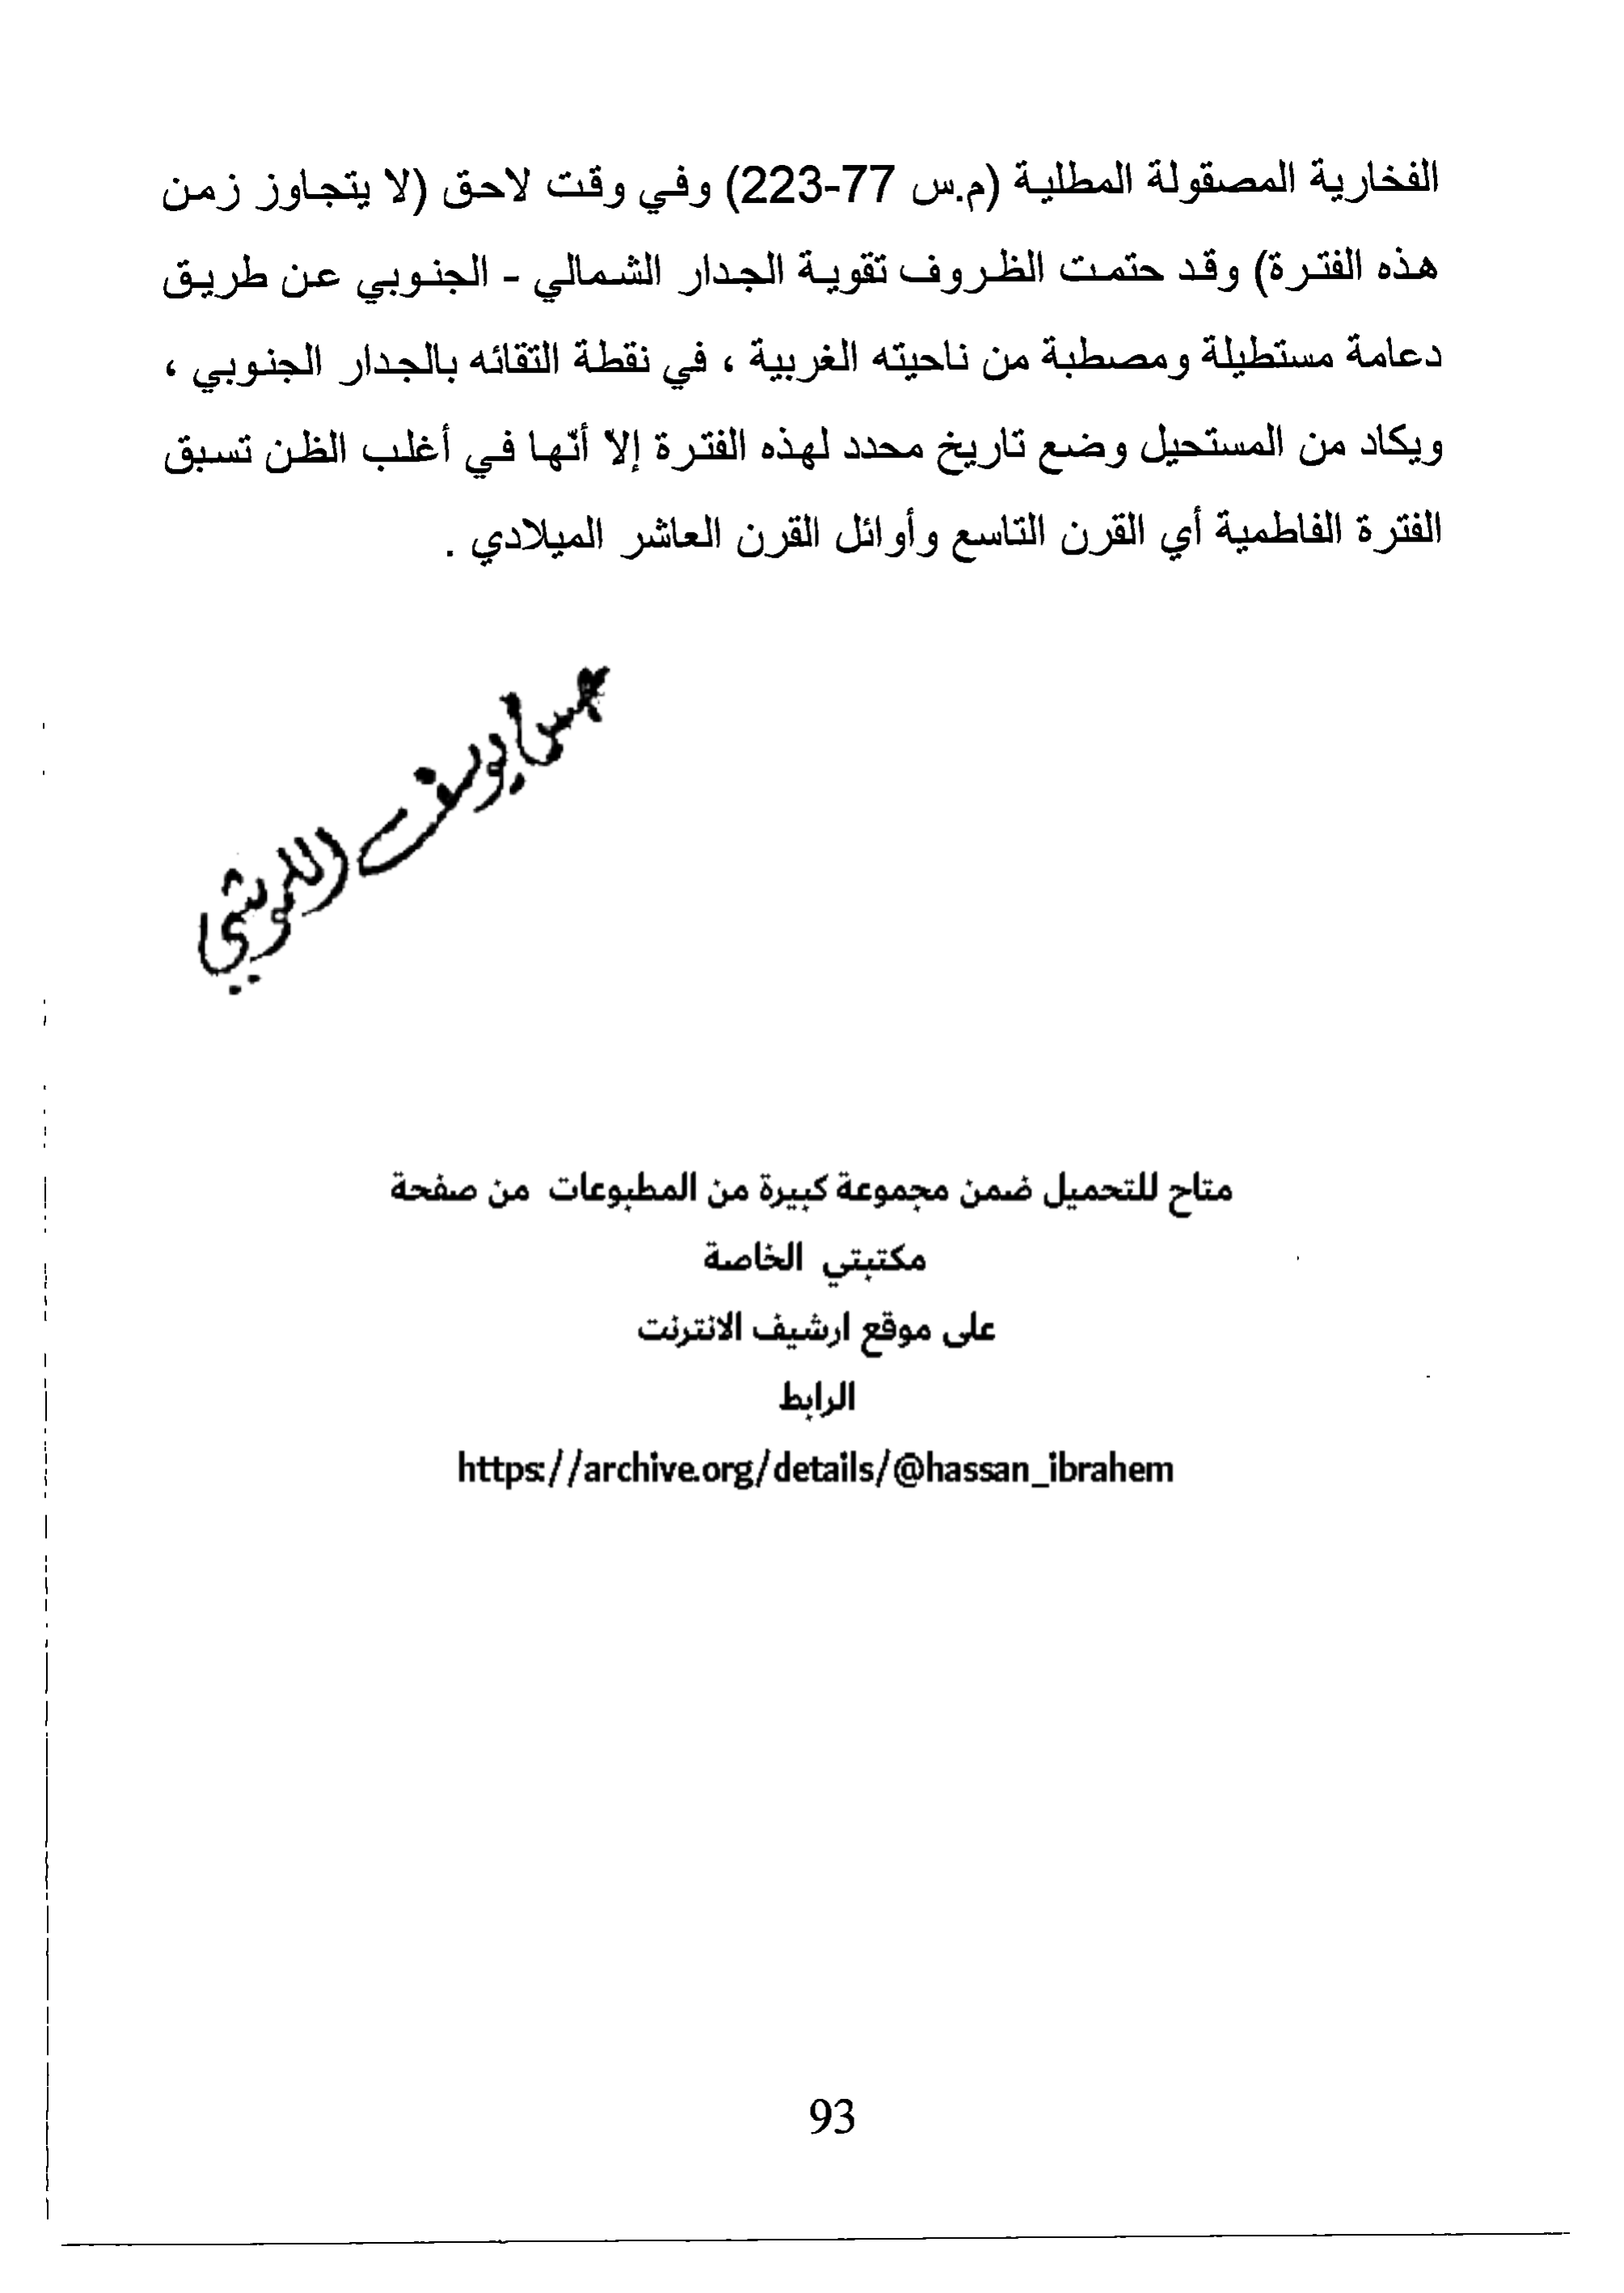 الفخارية المصقولة المطلية (م.س 77-223) وفي وقت لاحق (لا يتجاوز زمن
هذه الفترة) وقد حتمت الظروف تقوية الجدار الشمالي - الجنوبي عن طريق
دعامة مستطيلة ومصطبة من ناحيته الغربية ، في نقطة التقائه بالجدار الجنوبي ،
ويكاد من المستحيل وضع تاريخ محدد لهذه الفترة إلا أنّها في أغلب الظن تسبق
الفترة الفاطمية أي القرن التاسع وأوائل القرن العاشر الميلادي .
يوسف
متاح للتحميل ضمن مجموعة كبيرة من المطبوعات من صفحة
مكتبتي الخاصة
على موقع ارشيف الانترنت
الرابط
https://archive.org/details/@hassan_ibrahem
93